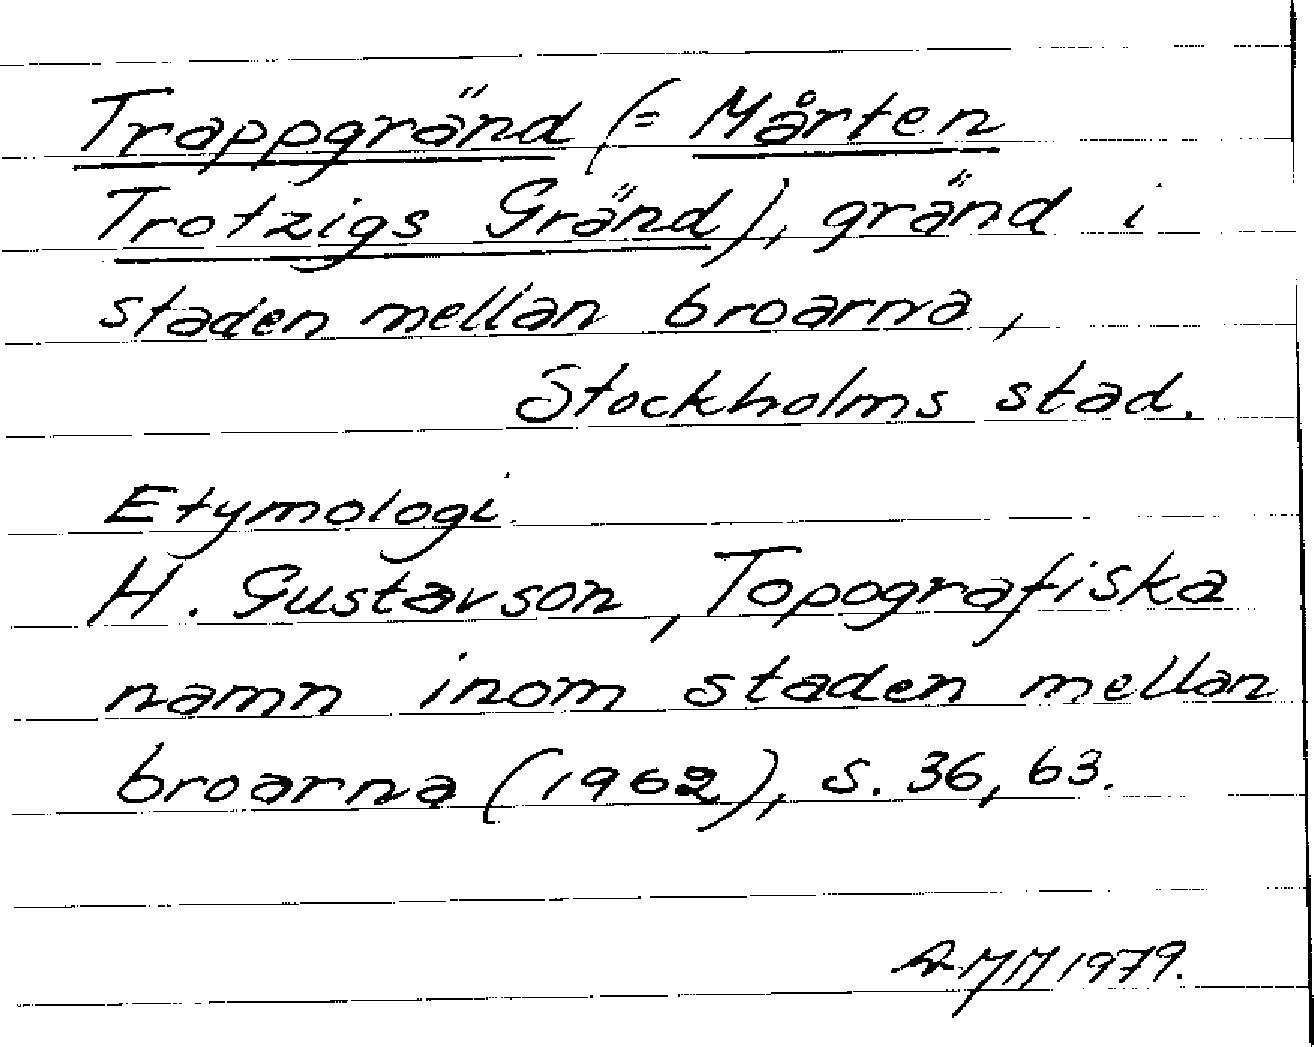 Trappgränd (= Mårten
Trotzigs Gränd), gränd i
staden mellan broarna,
Stockholms stad.
Etymologi.
H. Gustavson, Topografiska
namn inom staden mellan
broarna (1962), s. 36, 63.
AMM 1979.